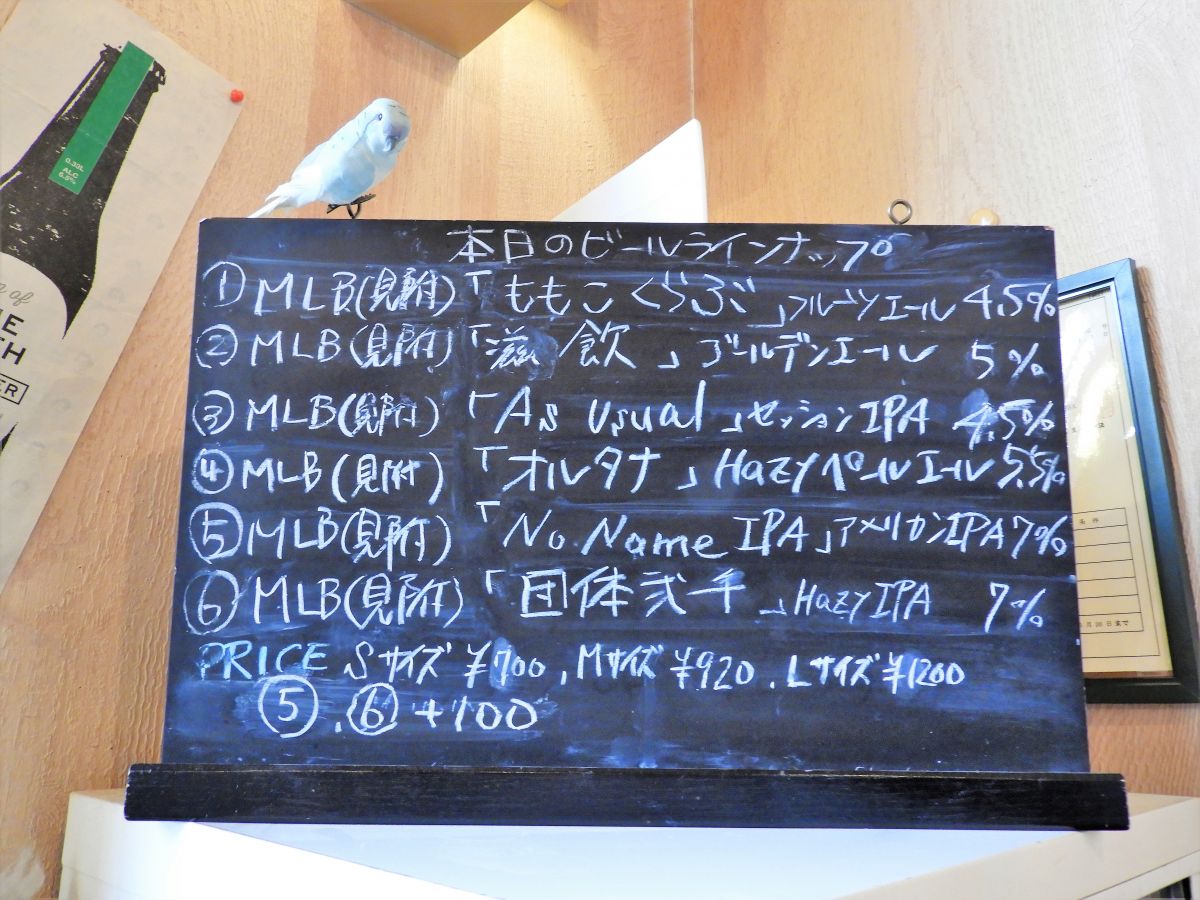 0.33L
ALC
6.5%
of
ER
本日のビールラインナップ
① MLB(見附)「ももこくらぶ」フルーツエール 4.5%
② MLB(見附)「滋飲」ゴールデンエール 5%
③ MLB(見附)「As usual」セッションIPA 4.5%
④ MLB(見附)「オルタナ」Hazyペールエール 5.5%
⑤ MLB(見附)「No Name IPA」アメリカンIPA 7%
⑥ MLB(見附)「団体弐千」HazyIPA 7%
PRICE Sサイズ ¥700, Mサイズ ¥920, Lサイズ ¥1200
⑤,⑥ +100